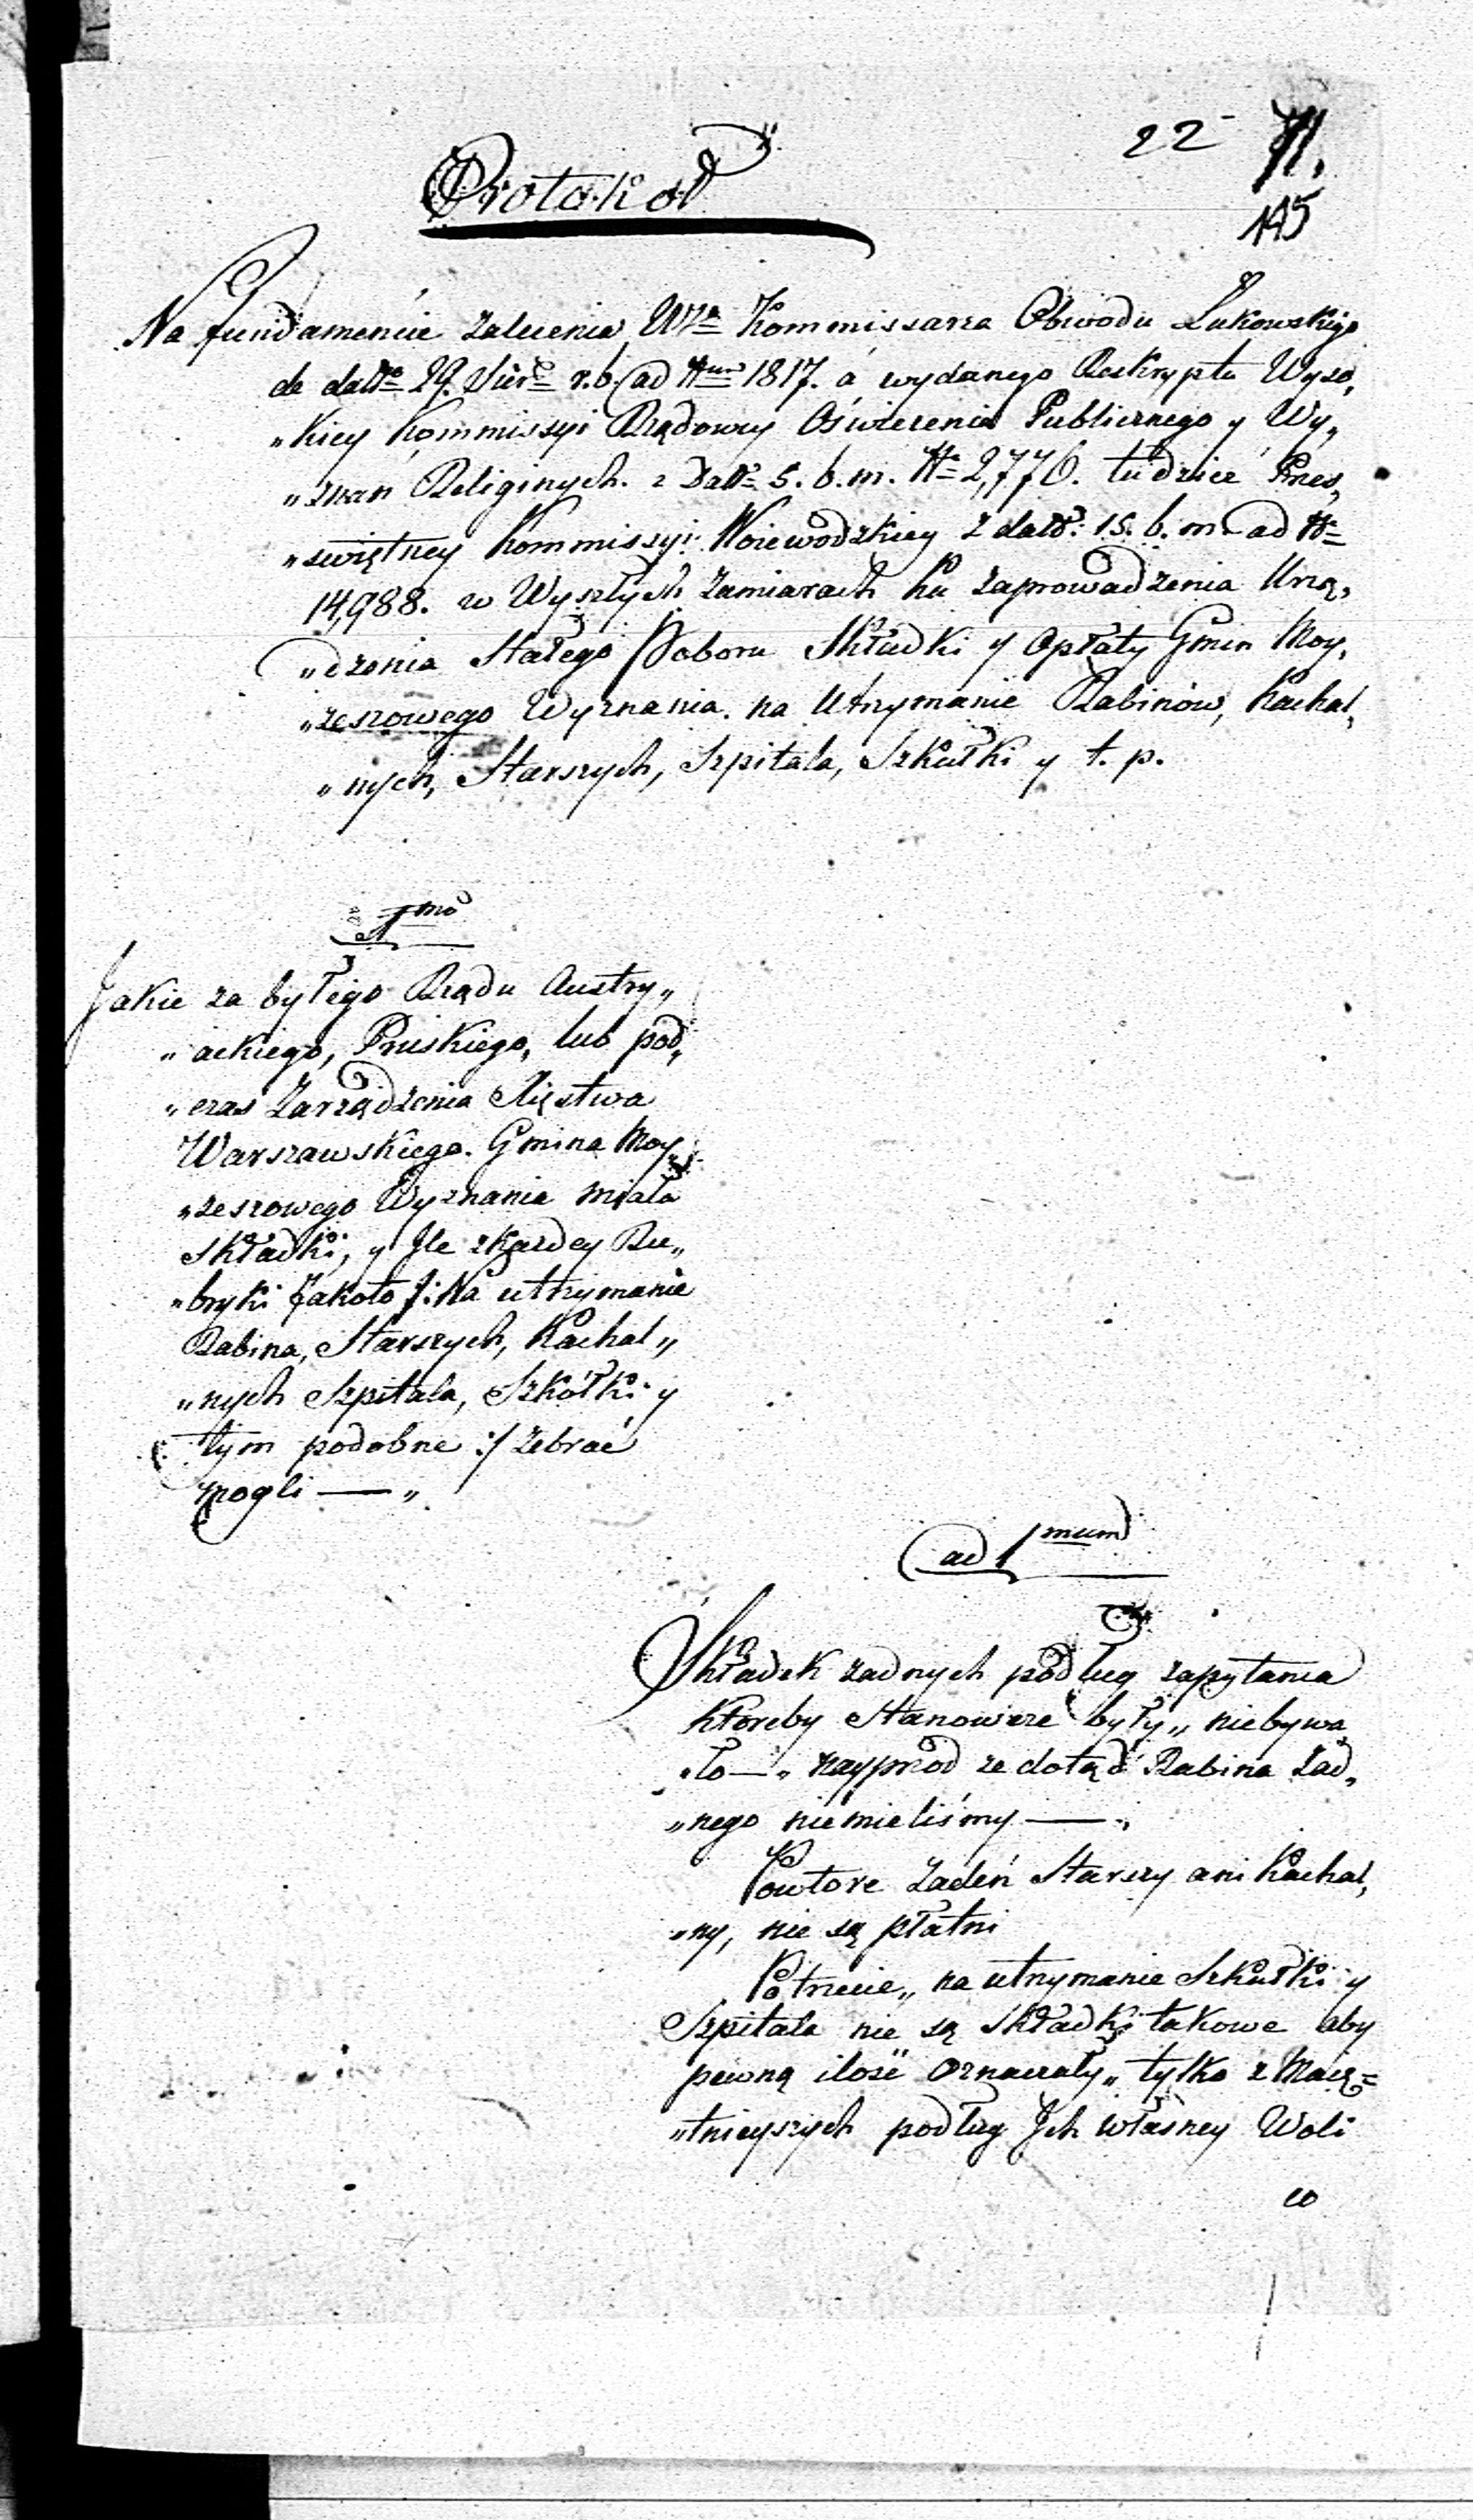 22
145
Protokoł
Na fundamencie zalecenia Wgo Kommissarza Obwodu Łukowskiego
de datto 29. r. b. ad Nrum 1817. a wydanego Reskryptu Wyso„
„kiey Kommissyi Rządowey Oświecenia Publicznego y Wy„
„znan Religinych. z Datto 5. b. m. No 2,776. tudzież Prześ„
„świętney Kommissyi Woiewodzkiey z datto: 15. b. m ad No
14,988. w Wyszłych zamiarach ku zaprowadzenia Urzą„
„dzenia Stałego Poboru Składki y Opłaty Gmin Moy„
„zeszowego Wyznania. na Utrzymanie Rabinów, Kachal„
„nych, Starszych, Szpitala, Szkułki y t. p.
1mo
Jakie za byłego Rządu Austry„
„ackiego, Pruskiego, lub pod„
„czas Zarządzenia Xięstwa
Warszawskiego. Gmina Moy„
„zeszowego Wyznania miała
Składki, y Jle zkazdey Ru„
„bryki Jakoto /: Na utrzymanie
Rabina, Starszych, Kachal„
„nych Szpitala, Szkółki y
tym podobne :/ zebrać
mogli — „
ad 1mum
Składek zadnych podług zapytania
ktoreby Stanowcze były„ niebywa„
„ło — „ nayprzod ze dotąd Rabina żad„
„nego niemieliśmy — „
Powtore Zaden Starszy ani Kachal„
„ny, nie są płatni
Potrzecie„ na utrzymanie Szkułki y
Szpitala nie są składki takowe aby
pewną ilość oznaczały„ tylko z Maię=
„tnieyszych podług Jch własney Woli
co